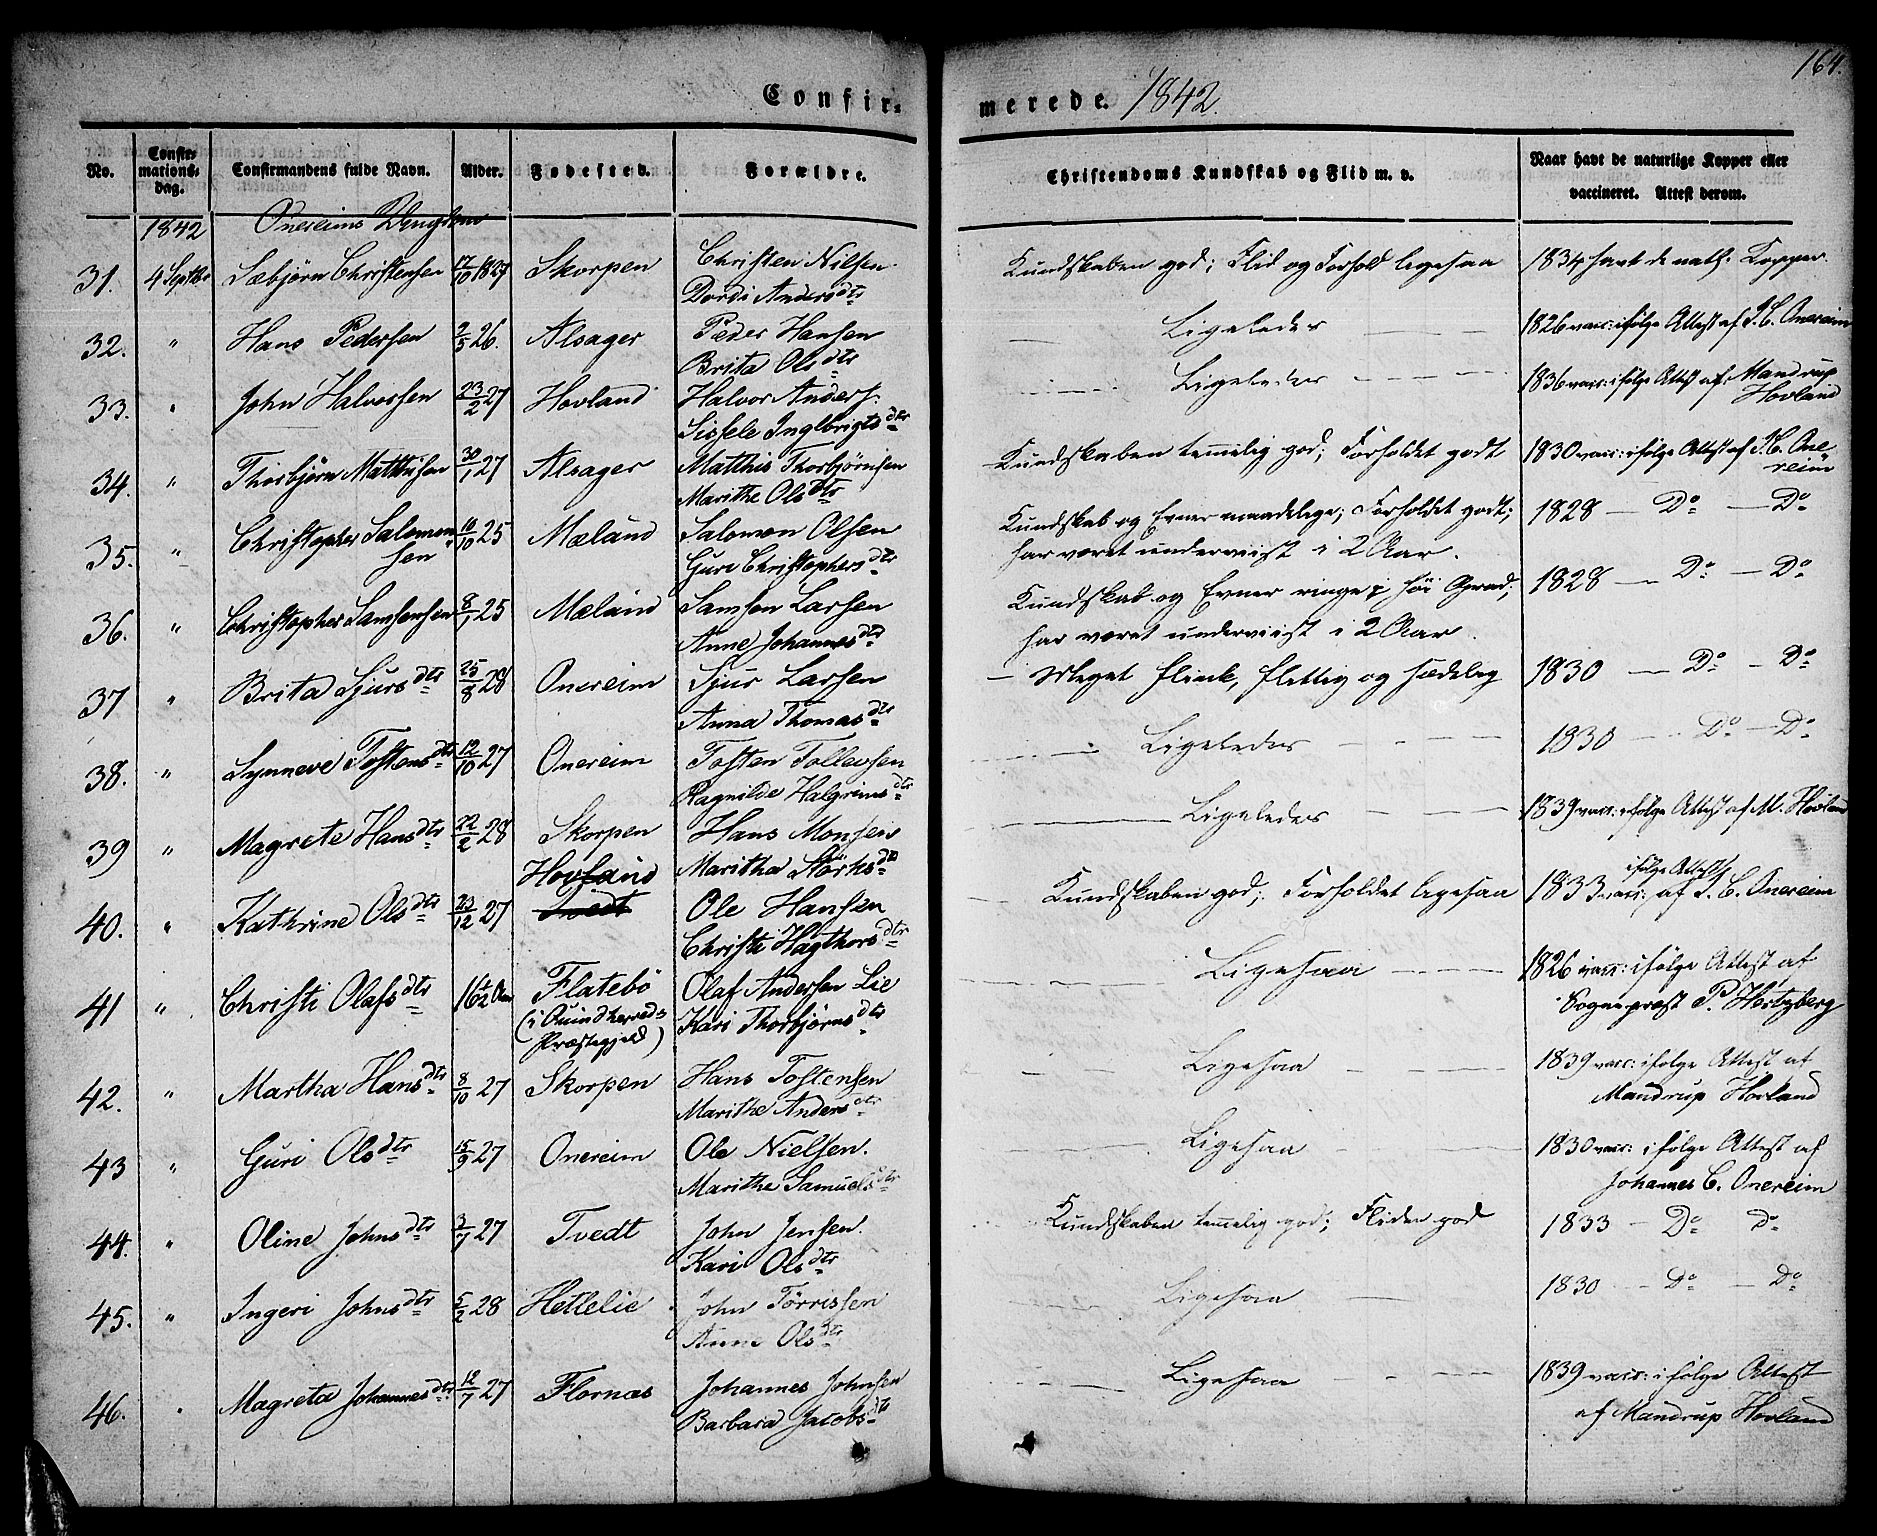 Confir-
merede. 1842.
164.
No.
Confir-
mations-
dag.
Confirmandens fulde Navn.
Alder.
Fødested.
Forældre.
Christendoms Kundskab og Flid m. v.
Naar havt de naturlige Kopper eller
vaccineret. Attest derom.
1842 Onereims
31. 4 Septbr Sæbjörn Christensen 17/10 1827 Skorpen Christen Nilsen Kundskaben god; Flid og Forhold ligesaa 1834 havt de nath. Kopper.
Dordi Andersdtr
32. " Hans Pedersen 2/5 26. Alsager Peder Hansen Ligeledes 1826 vacc: ifölge Attest af J. C. Onereim
Brita Olsdtr
33. " John Halvorsen 23/2 27 Hovland Halvor Anders. Ligeledes 1836 vacc: ifölge Attest af Mandrup
Hovland
Sissele Inglbrigtsdtr
34. " Thorbjörn Matthisen 30/1 27 Alsager Matthis Thorbjörnsen Kundskaben temelig god; Forholdet godt 1830 vacc: ifölge Attest af J. C. One-
reim
Marithe Olsdtr
35. " Christopher Salomon- 10/10 25 Mæland Salomon Olsen Kundskab og Evner maadelige; Forholdet godt; 1828 — Do — Do
sen Guri Christophersdtr har været underviist i 2 Aar.
36. " Christopher Samsonsen 8/1 25 Mæland Samson Larsen Kundskab og Evner ringe i höi Grad; 1828 — Do — Do
Anne Johannesdtr har været underviist i 2 Aar.
37 " Brita Sjursdtr 25/8 28 Onereim Sjur Larsen — Meget flink, flittig og sædelig 1830 — Do — Do
Anna Thomasdtr
38. " Synneve Tostensdtr 12/10 27 Onereim Tosten Tollevsen Ligeledes 1830 — Do — Do
Ragnilde Halgrimsdtr
39 " Magrete Hansdtr 22/2 28 Skorpen Hans Monsen Ligeledes 1839 vacc: ifölge Attest af M. Hovland
Maritha Störksdtr
Hovland
40. " Kathrine Olsdtr 23/12 27 Tvedt Ole Hansen Kundskaben god; Forholdet ligesaa 1833 vacc: ifölge Attest af J. C. Onereim
Christi Hagthorsdtr
41 " Christi Olafsdtr 16 1/2 Flatebö Olaf Andersen Lie Ligesaa 1826 vacc: ifölge Attest af
(i Quindherreds Kari Thorbjörnsdtr Sognepræst P. Hertzberg
Præstegjeld)
42. " Martha Hansdtr 8/10 27 Skorpen Hans Tostensen Ligesaa 1839 vacc: ifölge Attest af
Marithe Andersdtr Mandrup Hovland
43 " Guri Olsdtr 15/9 27 Onereim Ole Nielsen. Ligesaa 1830 vacc: ifölge Attest af
Marithe Samuelsdtr Johannes C. Onereim
44. " Oline Johnsdtr 3/7 27 Tvedt John Jensen. Kundskaben temelig god; Fliden god 1833 — Do do
Kari Olsdtr
45. " Ingeri Johnsdtr 5/2 28 Hettelie John Törrissen Ligesaa 1830 — Do — Do
Anne Olsdtr
46. " Magreta Johannesdtr 12/7 27 Flornæs Johannes Johnsen Ligesaa 1839 vacc: ifölge Attest
Barbara Jacobsdtr af Mandrup Hovland